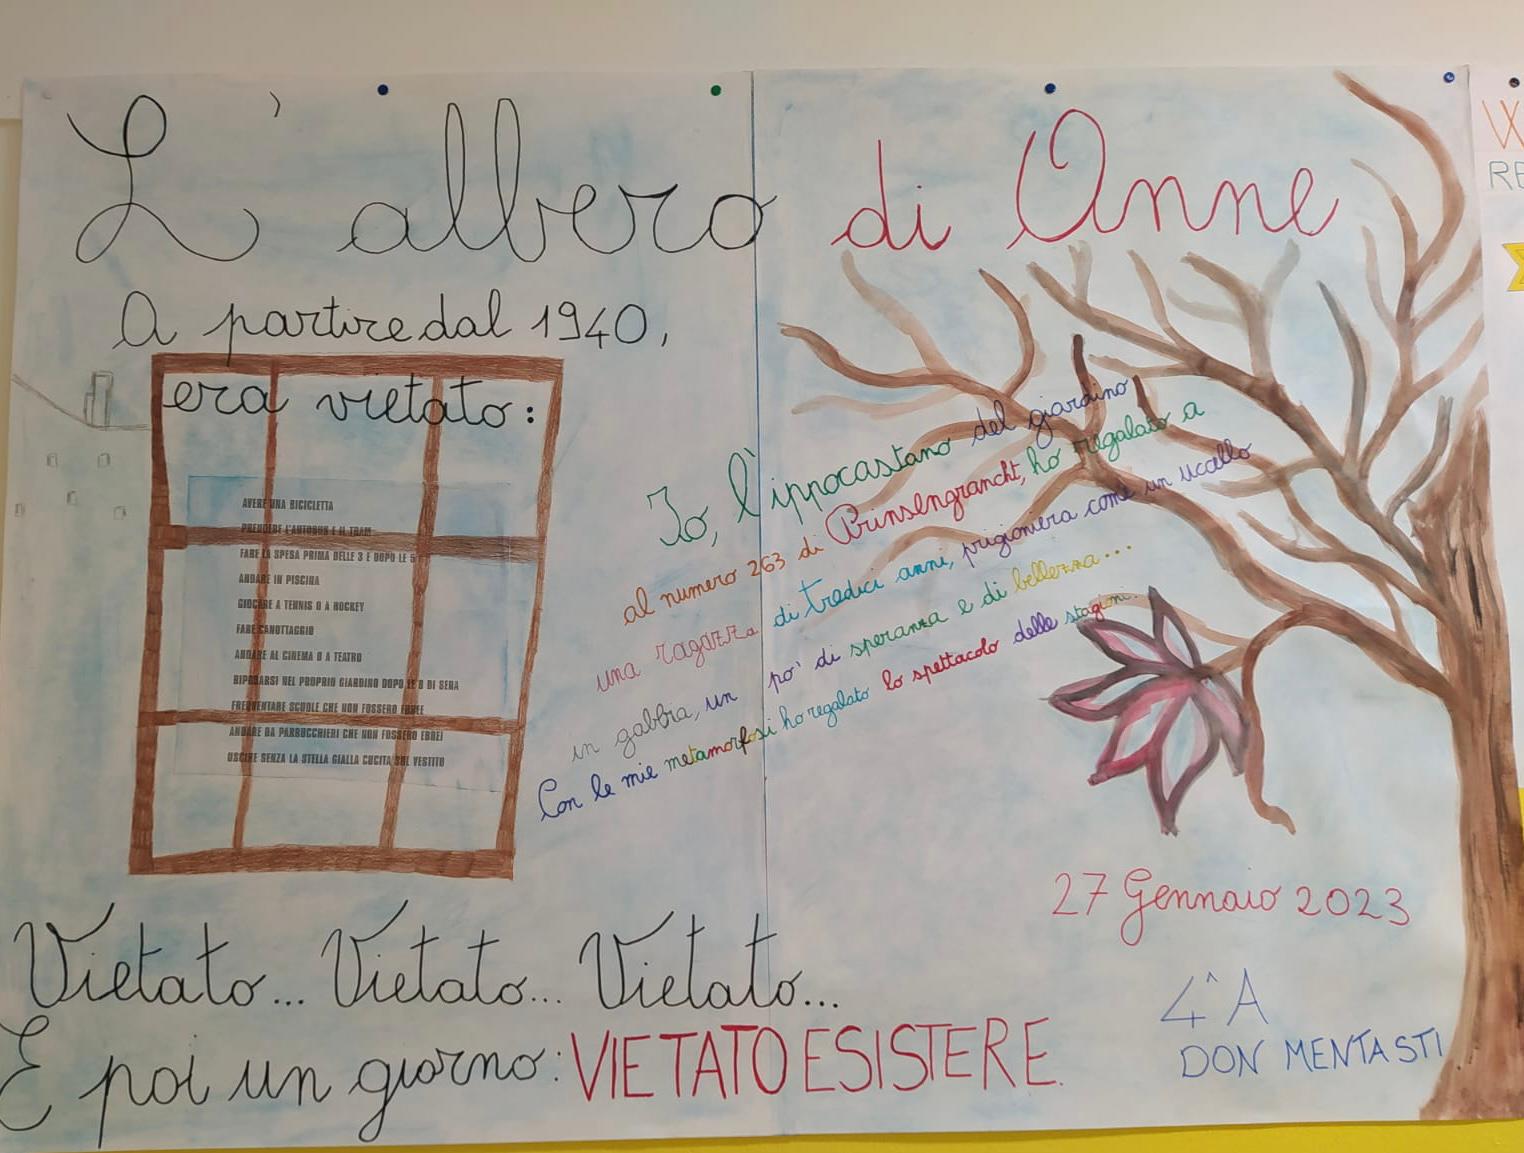 L'albero di Anne
A partire dal 1940,
era vietato:
AVERE UNA BICICLETTA
PRENDERE L'AUTOBUS E IL TRAM
FARE LA SPESA PRIMA DELLE 3 E DOPO LE 5
ANDARE IN PISCINA
GIOCARE A TENNIS O A HOCKEY
FARE CANOTTAGGIO
ANDARE AL CINEMA O A TEATRO
RIPOSARSI NEL PROPRIO GIARDINO DOPO LE 8 DI SERA
FREQUENTARE SCUOLE CHE NON FOSSERO EBREE
ANDARE DA PARRUCCHIERI CHE NON FOSSERO EBREI
USCIRE SENZA LA STELLA GIALLA CUCITA SUL VESTITO
Io, l'ippocastano del giardino
al numero 263 di Prinsengrancht, ho regalato a
una ragazza di tredici anni, prigioniera come un uccello
in gabbia, un po' di speranza e di bellezza...
Con le mie metamorfosi ho regalato lo spettacolo delle stagioni.
27 Gennaio 2023
Vietato... Vietato... Vietato...
E poi un giorno: VIETATO ESISTERE.
4^A
DON MENTASTI
W
RE